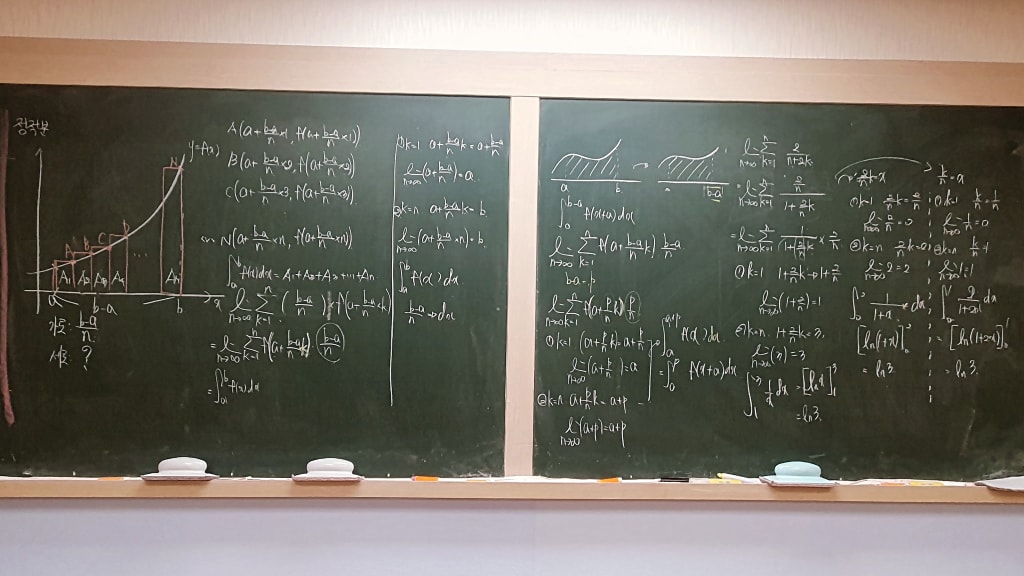 정적분
y=f(x)
N
A B C D
A₁ A₂ A₃ A₄ ... Aₙ
a b x
b-a
가로: (b-a)/n
세로: ?
A(a+(b-a)/n×1, f(a+(b-a)/n×1))
B(a+(b-a)/n×2, f(a+(b-a)/n×2))
C(a+(b-a)/n×3, f(a+(b-a)/n×3))
N(a+(b-a)/n×n, f(a+(b-a)/n×n))
∫ₐᵇ f(x)dx = A₁+A₂+A₃+...+Aₙ
lim n→∞ Σ k=1 n ((b-a)/n) f(a+(b-a)/n k)
= lim n→∞ Σ k=1 n f(a+(b-a)/n k) (b-a)/n
= ∫ₐᵇ f(x)dx
① k=1 a+(b-a)/n k = a+(b-a)/n
lim n→∞ (a+(b-a)/n) = a
② k=n a+(b-a)/n k = b
lim n→∞ (a+(b-a)/n×n) = b
∫ₐᵇ f(x)dx
(b-a)/n → dx
a b → b-a
∫₀^(b-a) f(x+a)dx
lim n→∞ Σ k=1 n f(a+(b-a)/n k) (b-a)/n
b-a=p
lim n→∞ Σ k=1 n f(a+p/n k) p/n
① k=1 (a+p/n k) = a+p/n
lim n→∞ (a+p/n) = a
② k=n a+p/n k = a+p
lim n→∞ (a+p) = a+p
∫ₐ^(a+p) f(x)dx
= ∫₀^p f(x+a)dx
lim n→∞ Σ k=1 n 2/(n+2k)
= lim n→∞ Σ k=1 n (2/n)/(1+2/n k)
= lim n→∞ Σ k=1 n 1/(1+2/n k) × 2/n
① k=1 1+2/n k → 1+2/n
lim n→∞ (1+2/n) = 1
② k=n 1+2/n k = 3
lim n→∞ (3) = 3
∫₁³ 1/x dx = [ln x]₁³
= ln 3
① k=1 2/n k = 2/n
lim n→∞ 2/n = 0
② k=n 2/n k = 2
lim n→∞ 2 = 2
∫₀² 1/(1+x) dx
[ln(1+x)]₀²
= ln 3
k/n = x
① k=1 k/n = 1/n
lim n→∞ 1/n = 0
② k=n k/n = 1
lim n→∞ 1 = 1
∫₀¹ 2/(1+2x) dx
= [ln(1+2x)]₀¹
= ln 3